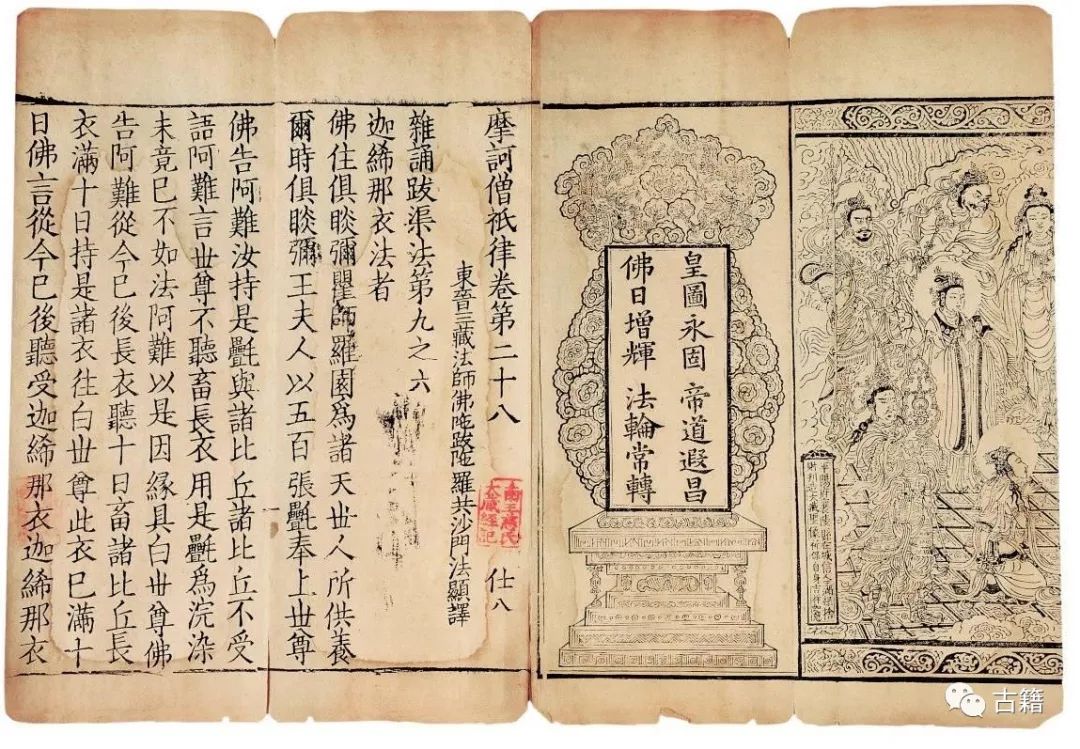 皇圖永固 帝道遐昌
佛日增輝 法輪常轉
摩訶僧祇律卷第二十八 仕八
東晉三藏法師佛陀跋陀羅共沙門法顯譯
雜誦跋渠法第九之六
迦絺那衣法者
佛住俱睒彌瞿師羅園爲諸天世人所供養
爾時俱睒彌王夫人以五百張氎奉上世尊
佛告阿難汝持是氎與諸比丘諸比丘不受
語阿難言世尊不聽畜長衣用是氎爲浣染
未竟已不如法阿難以是因緣具白世尊佛
告阿難從今已後長衣聽十日畜諸比丘長
衣滿十日持是諸衣往白世尊此衣已滿十
日佛言從今已後聽受迦絺那衣迦絺那衣
古籍